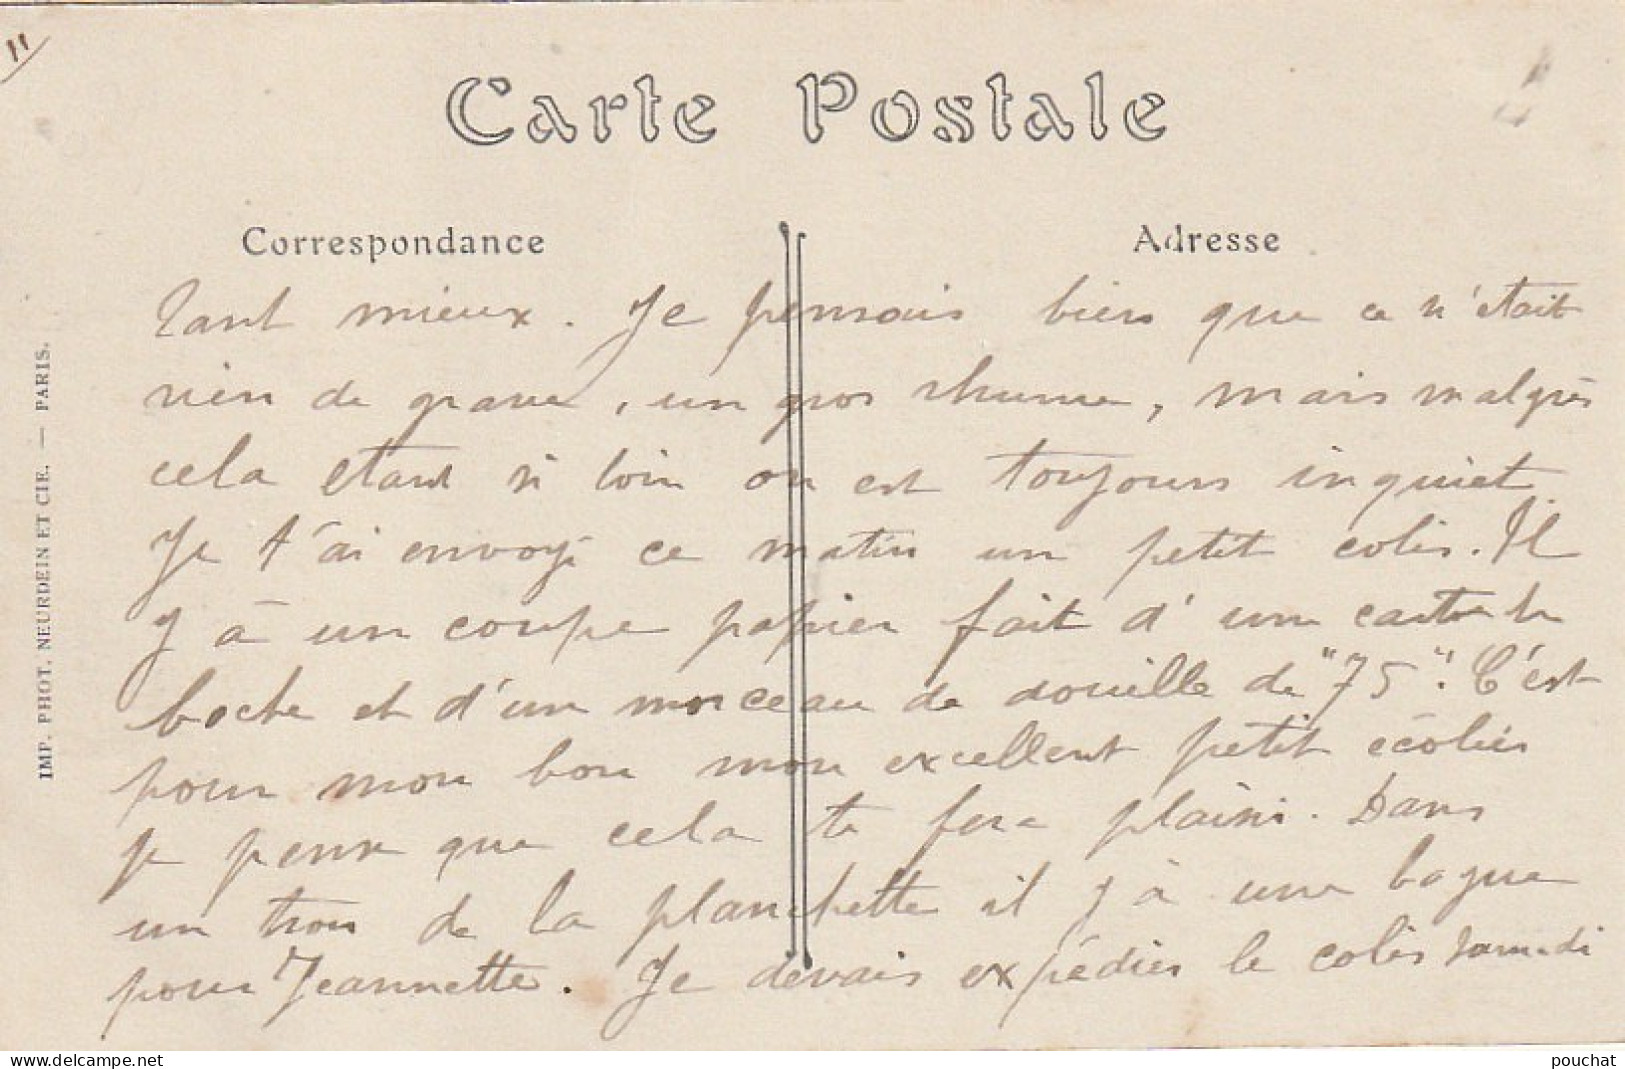 11
Carte Postale
Correspondance
Adresse
tant mieux. Je pensais bien que ce n'était
rien de grave, un gros rhume, mais malgrès
cela etant si loin on est toujours inquiet.
Je t'ai envoyé ce matin un petit colis. Il
y à un coupe papier fait d'une cartouche
boche et d'un morceau de douille de "75". C'est
pour mon bon mon excellent petit écolier
je pense que cela te fera plaisir. Dans
un trou de la planchette il y à une bague
pour Jeannette. Je devais expédier le colis samedi
IMP. PHOT. NEURDEIN ET CIE. — PARIS.
www.delcampe.net
pouchat